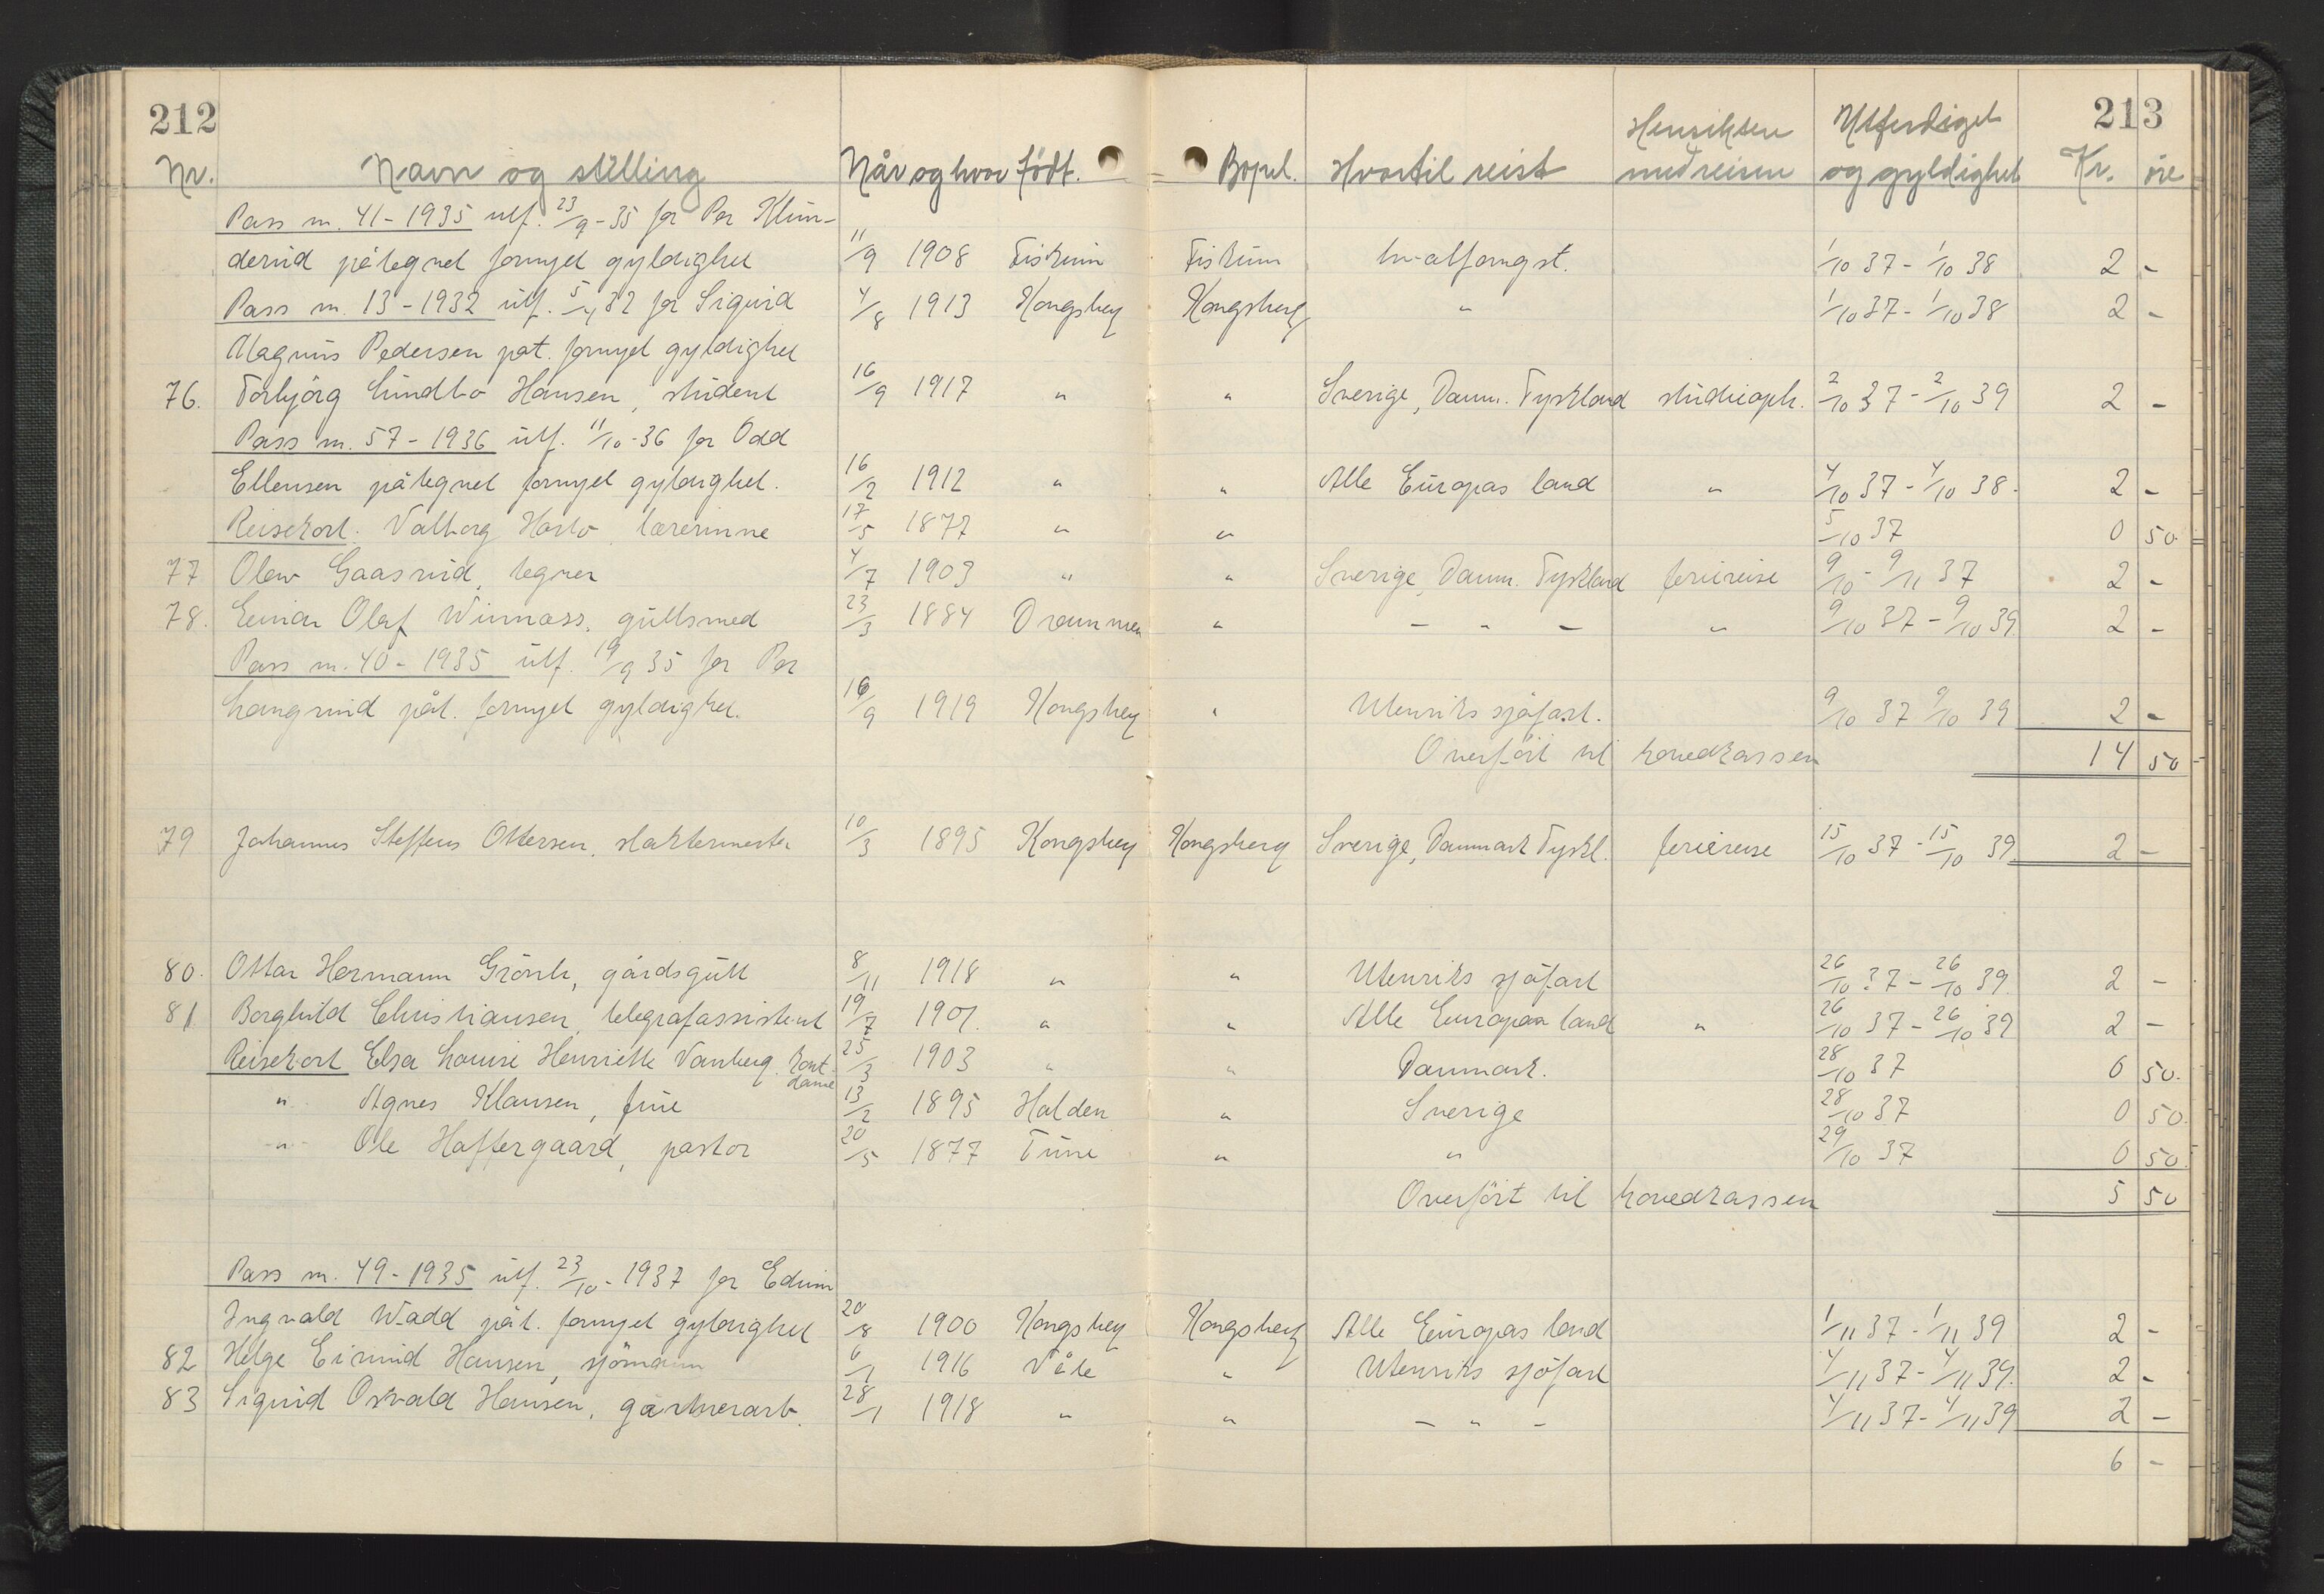 212 213
Nr. Navn og stilling Når og hvor født. Bopel. Hvortil reist Hensikten med reisen Utferdiget og gyldighet Kr. øre
Pass nr. 41-1935 utf. 23/9-35 for Per
påtegnet fornyet gyldighet 11/9 1908 Fiskum Fiskum hvalfangst. 1/10 37 - 1/10 38 2 -
Pass nr. 13-1932 utf. 5/4 32 for Sigurd 4/8 1913 Kongsberg Kongsberg " 1/10 37 - 1/10 38 2 -
Magnus Pedersen påt. fornyet gyldighet
76. Torbjörg Lindbo Hansen, student 16/9 1917 " " Sverige, Danm. Tyskland studieoph. 2/10 37 - 2/10 39 2 -
Pass nr. 57-1936 utf. 11/10-36 for Odd
Ellensen påtegnet fornyet gyldighet. 16/2 1912 " " Alle Europas land " 4/10 37 - 4/10 38. 2 -
Reisekort: Valborg lærerinne 17/5 1877 " " 5/10 37 0 50
77 Olav Gaasrud, tegner 4/7 1903 " " Sverige, Danm. Tyskland feriereise 9/10 - 9/11 37 2 -
78. Einar Olaf Winnæss, gullsmed 23/3 1884 Drammen " - " - " 9/10 37 - 9/10 39. 2 -
Pass nr. 40-1935 utf. 19/9 35 for Per
Langrud påt. fornyet gyldighet. 16/9 1919 Kongsberg " Utenriks sjöfart. 9/10 37 9/10 39 2 -
Overfört til hovedkassen 14 50
79 Johannes Steffens Ottersen, slaktermester 10/3 1895 Kongsberg Kongsberg Sverige, Danmark Tyskl. feriereise 15/10 37 - 15/10 39. 2 -
80. Ottar Hermann gårdsgutt 8/11 1918 " " Utenriks sjöfart 26/10 37 - 26/10 39. 2 -
81 Borghild Christiansen, telegrafassistent 19/7 1901. " " Alle Europas land " 26/10 37 - 26/10 39 2 -
Reisekort Elsa Louise Henriette Vanberg. kont.dame 25/3 1903 " " Danmark. 28/10 37 0 50.
" Agnes Klausen, frue 13/2 1895 Halden " Sverige 28/10 37 0 50.
" Ole Haftergaard, pastor 20/5 1877 Tune " " 29/10 37 0 50.
Overfört til hovedkassen 5 50
Pass nr. 49-1935 utf. 23/10-1937 for Edvin
Ingvald Wadd påt. fornyet gyldighet 20/8 1900 Kongsberg Kongsberg Alle Europas land 1/11 37 - 1/11 39 2 -
82 Helge Eimund Hansen, sjömann 6/1 1916 Våle " Utenriks sjöfart 4/11 37 - 4/11 39. 2 -
83 Sigurd Osvald Hansen, gartnerarb. 28/1 1918 " " - " - 4/11 37 - 4/11 39 2 -
6 -